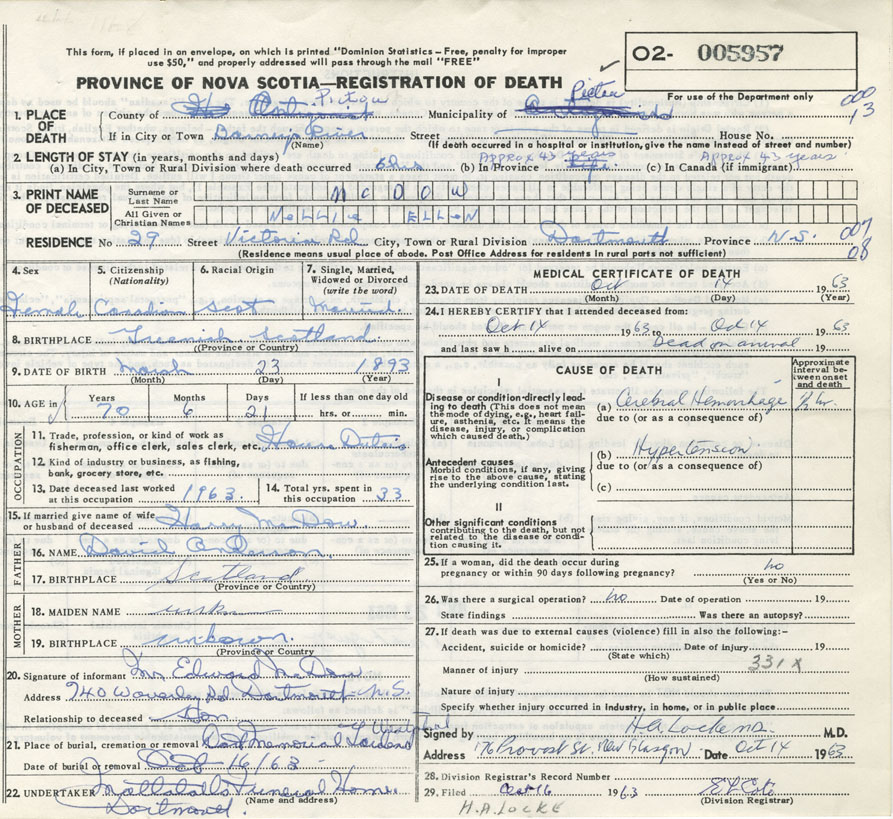 This form, if placed in an envelope, on which is printed "Dominion Statistics – Free, penalty for improper
use $50," and properly addressed will pass through the mail "FREE"
O2- 005957
PROVINCE OF NOVA SCOTIA—REGISTRATION OF DEATH
For use of the Department only
1. PLACE OF DEATH County of Pictou Municipality of Pictou
If in City or Town Barneys River Street House No.
(Name) (If death occurred in a hospital or institution, give the name instead of street and number)
2. LENGTH OF STAY (in years, months and days) APPROX 43 years APPROX 43 years
(a) In City, Town or Rural Division where death occurred (b) In Province (c) In Canada (if immigrant)
3. PRINT NAME OF DECEASED Surname or Last Name McDOW
All Given or Christian Names NELLIE ELLEN
007
08
RESIDENCE No 29 Street Victoria Rd City, Town or Rural Division Dartmouth Province N.S.
(Residence means usual place of abode. Post Office Address for residents in rural parts not sufficient)
4. Sex 5. Citizenship (Nationality) 6. Racial Origin 7. Single, Married, Widowed or Divorced (write the word)
Female Canadian Scot Married
8. BIRTHPLACE Scotland
(Province or Country)
9. DATE OF BIRTH March 23 1893
(Month) (Day) (Year)
10. AGE in Years Months Days If less than one day old
70 6 21 hrs. or min.
OCCUPATION
11. Trade, profession, or kind of work as fisherman, office clerk, sales clerk, etc. House Duties
12. Kind of industry or business, as fishing, bank, grocery store, etc.
13. Date deceased last worked at this occupation 1963. 14. Total yrs. spent in this occupation 33
15. If married give name of wife or husband of deceased Harry McDow.
FATHER
16. NAME David Anderson.
17. BIRTHPLACE Scotland
(Province or Country)
MOTHER
18. MAIDEN NAME unk
19. BIRTHPLACE unknown.
(Province or Country)
20. Signature of informant Mr Edward McDow
Address 740 Waverley Rd Dartmouth N.S.
Relationship to deceased Son
21. Place of burial, cremation or removal Dart Memorial Gardens
Date of burial or removal Oct 16/63
22. UNDERTAKER Mattatalls Funeral Home
(Name and address)
Dartmouth.
MEDICAL CERTIFICATE OF DEATH
23. DATE OF DEATH Oct 14 1963
(Month) (Day) (Year)
24. I HEREBY CERTIFY that I attended deceased from:
Oct 14 1963 to Oct 14 1963
and last saw h alive on Dead on arrival 19
CAUSE OF DEATH Approximate interval between onset and death
I
Disease or condition-directly leading to death (This does not mean the mode of dying, e.g., heart failure, asthenia, etc. It means the disease, injury, or complication which caused death.)
(a) Cerebral Hemorrhage ½ hr.
due to (or as a consequence of)
Antecedent causes
Morbid conditions, if any, giving rise to the above cause, stating the underlying condition last.
(b) Hypertension
due to (or as a consequence of)
(c)
II
Other significant conditions contributing to the death, but not related to the disease or condition causing it.
25. If a woman, did the death occur during pregnancy or within 90 days following pregnancy? no
(Yes or No)
26. Was there a surgical operation? no Date of operation 19
State findings Was there an autopsy?
27. If death was due to external causes (violence) fill in also the following:–
Accident, suicide or homicide? Date of injury 19
(State which)
331 X
Manner of injury
(How sustained)
Nature of injury
Specify whether injury occurred in industry, in home, or in public place
Signed by H.A. Locke M.D. M.D.
Address 176 Provost St. New Glasgow Date Oct 14 1963
28. Division Registrar's Record Number
29. Filed Oct 16 1963
(Division Registrar)
H.A. LOCKE